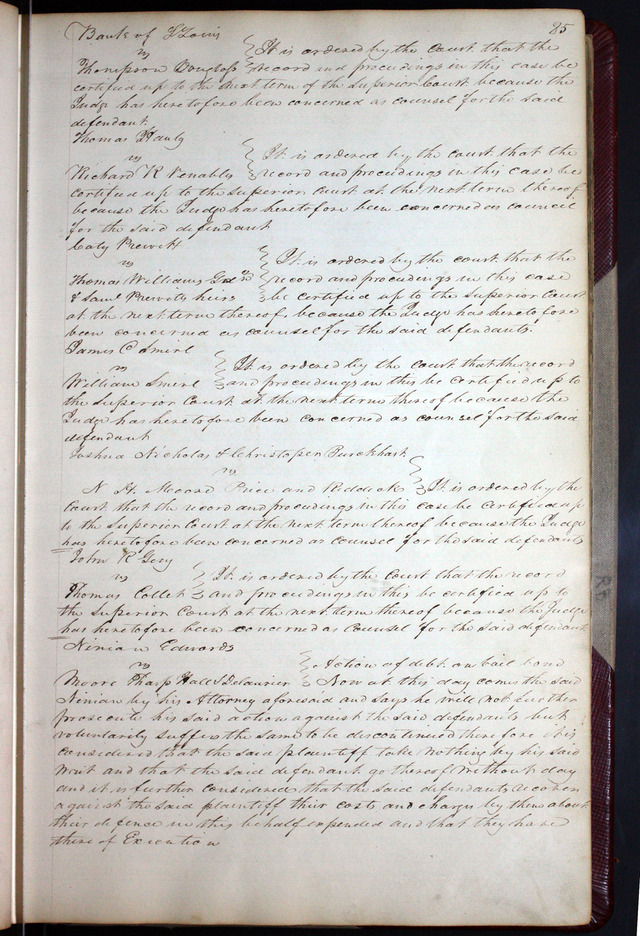 85
Bank of St Louis
vs
Thompson Douglass } It is ordered by the court that the
record and proceedings in this case be
certified up to the next term of the Superior Court because the
Judge has heretofore been concerned as counsel for the said
defendant.
Thomas Hanly
vs
Richard R Venables } It is ordered by the court that the
record and proceedings in this case be
certified up to the superior court at the next term thereof
because the Judge has heretofore been concerned as council
for the said defendant
Caty Prewitt
vs
Thomas Williams Gdn } It is ordered by the court that the
record and proceedings in this case
& Saml Prewits heirs be certified up to the Superior Court
at the next term thereof, because the Judge has heretofore
been concerned as counsel for the said defendants.
James C Smirl
vs
William Smirl } It is ordered by the court that the record
and proceedings in this be certified up to
the Superior Court at the next term thereof because the
Judge has heretofore been concerned as counsel for the said
defendant
Joshua Nicholas & Christopher Burckhart
vs
N H. Moore Price and Riddick } It is ordered by the
Court that the record and proceedings in this case be certified up
to the Superior Court at the next term thereof because the Judge
has heretofore been concerned as counsel for the said defendants
John R Gey
vs
Thomas Collet } It is ordered by the Court that the record
and proceedings in this be certified up to
the Superior Court at the next term thereof because the Judge
has heretofore been concerned as Counsel for the said defendant
Ninian Edwards
vs
Moore Tharp Hall & Delaurier } Action of debt on bail bond
Now at this day comes the said
Ninian by his Attorney aforesaid and says he will not further
prosecute his said action against the said defendants but
voluntarily suffers the same to be discontinued therefore it is
considered that the said plaintiff take nothing by his said
writ and that the said defendant go thereof without day
and it is further considered that the said defendants recover
against the said plaintiff their costs and charges by them about
their defence in this behalf expended and that they have
thereof Execution